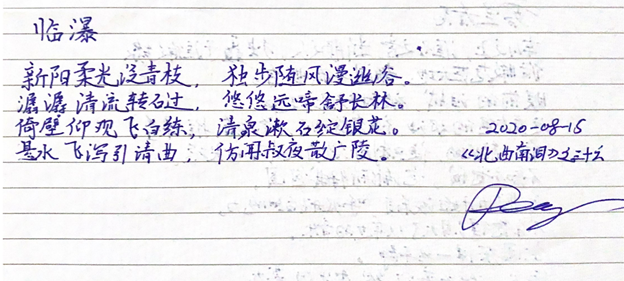 临瀑
新阳柔光浸青枝，独步随风漫逃谷。
潺潺清流转石过，悠悠远啼舒长林。
倚壁仰观飞白练，清泉漱石绽银花。
悬水飞泻引清曲，仿闻叔夜散广陵。
2020-08-15
《北西南洄》之三十六